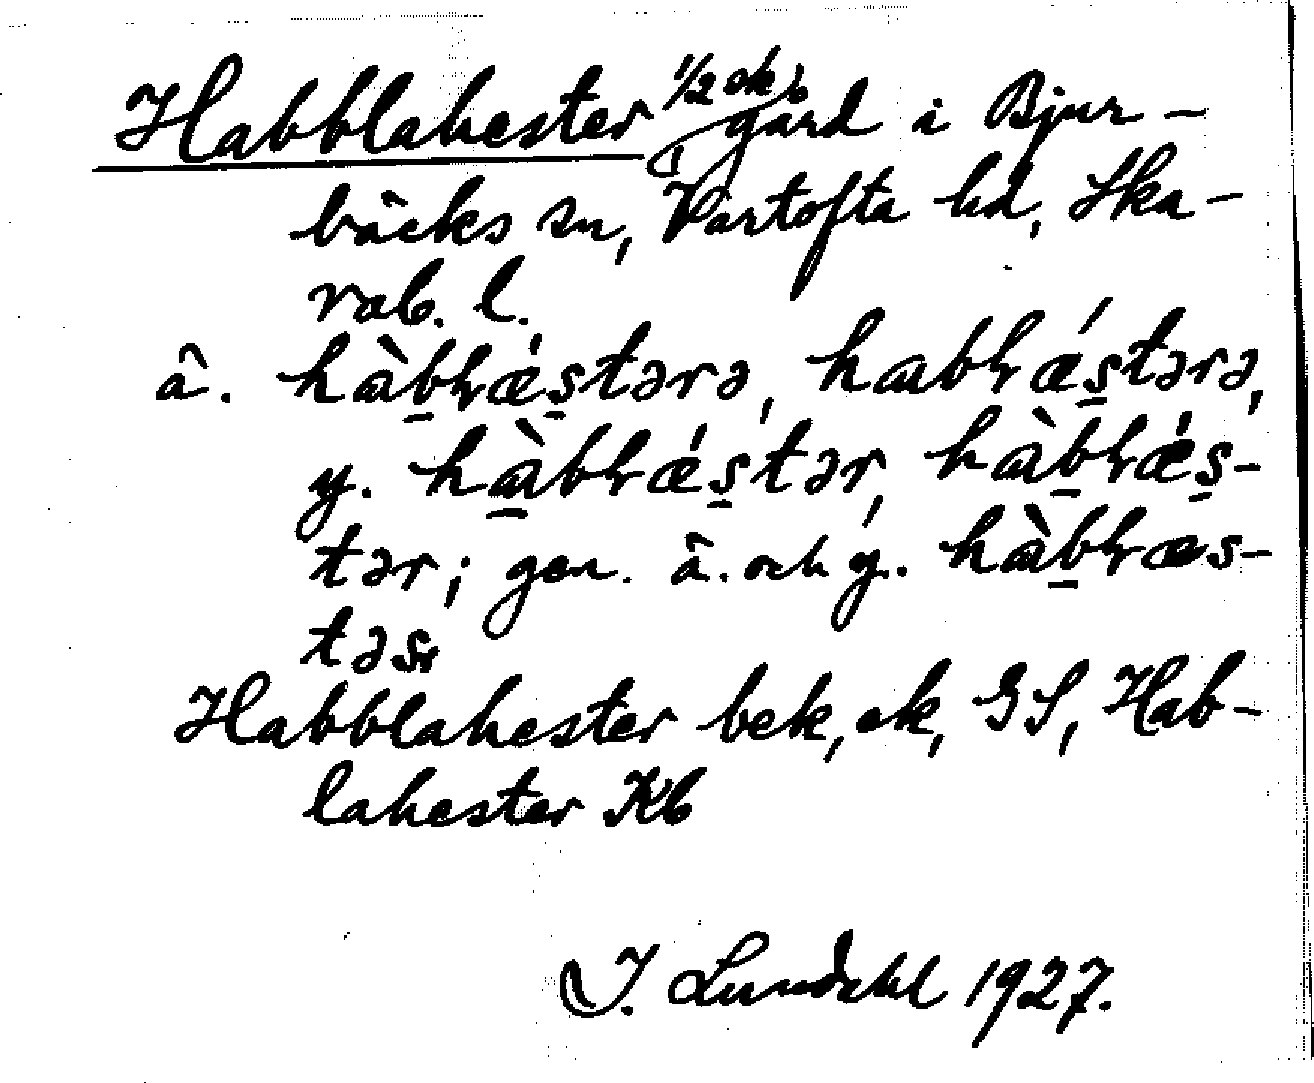 Habblahester 1/2 sk, gård i Bjur-
bäcks sn, Vartofta hd, Ska-
rab. l.
ä. hàbhǽstərə, habhǽstərə,
y. hàbhǽstər, hàbhǽs-
tər; gen. ä. och y. hàbhæs-
təs
Habblahester bek, ek, GS, Hab-
lahester Kb
I. Lundahl 1927.